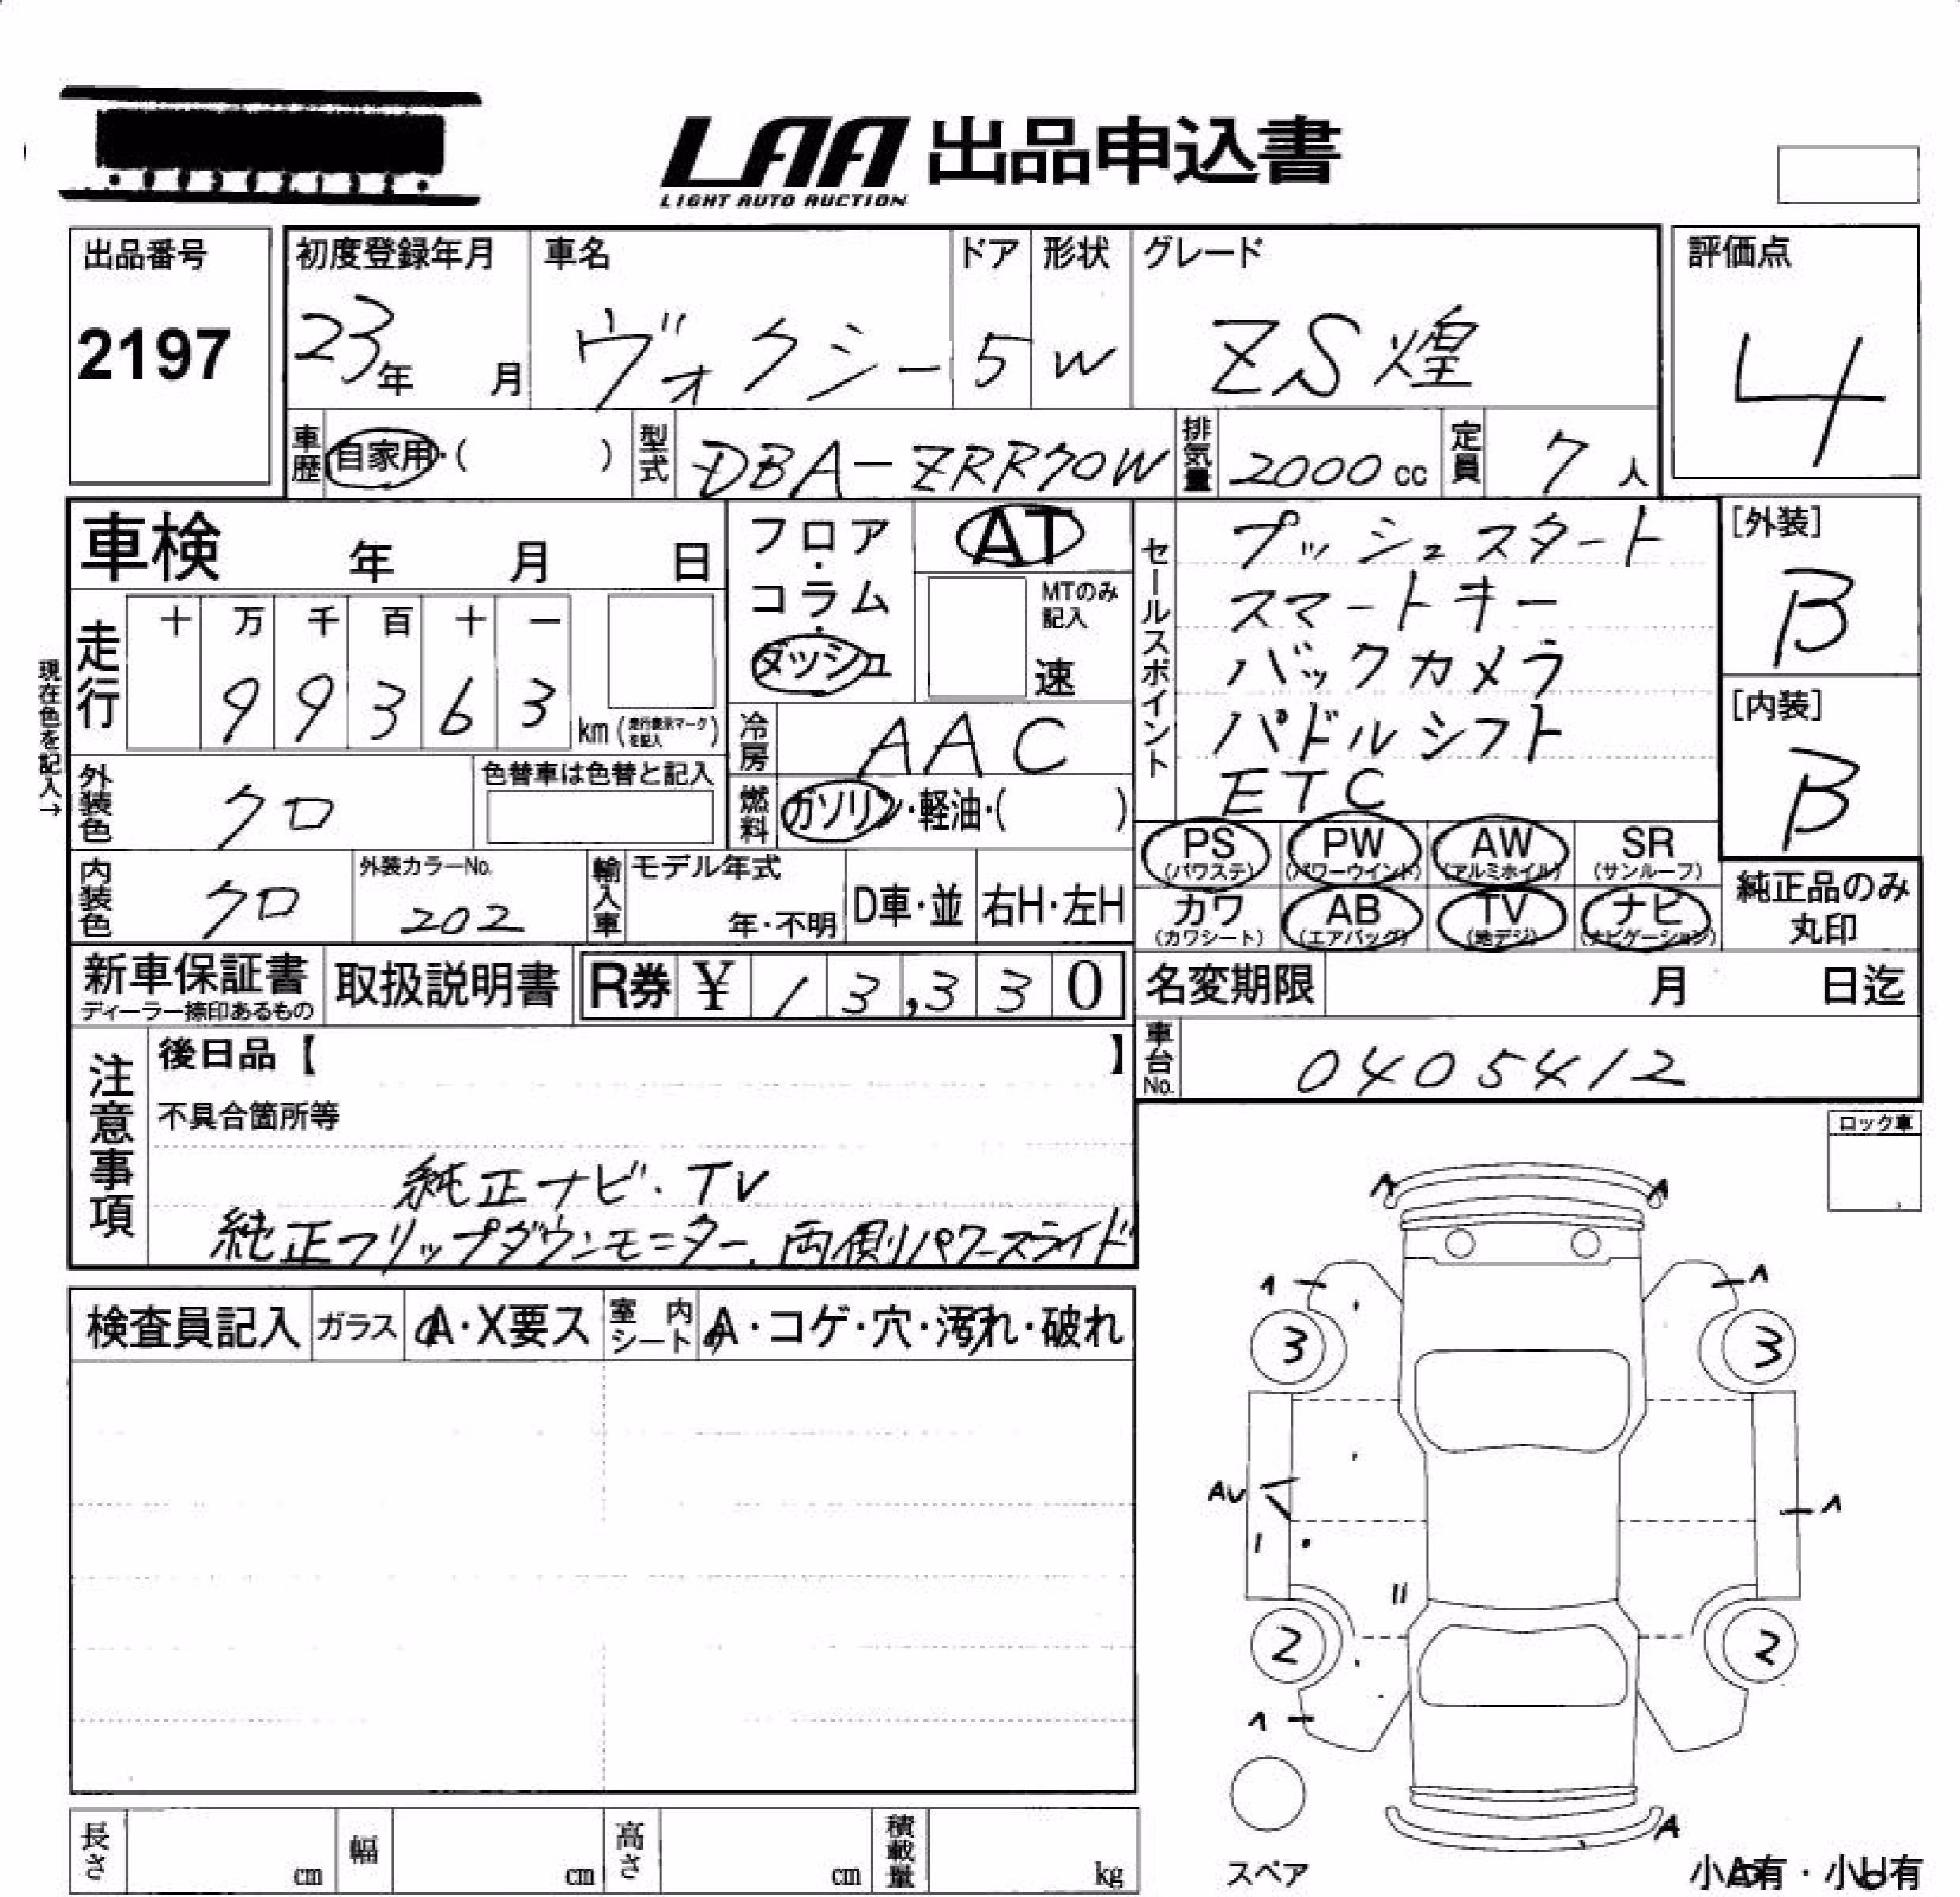 LAA 出品申込書
LIGHT AUTO AUCTION
出品番号
2197
初度登録年月
23年 月
車名
ヴォクシー
ドア
5
形状
W
グレード
ZS煌
評価点
4
車歴 自家用・( )
型式 DBA-ZRR70W
排気量 2000 cc
定員 7 人
車検 年 月 日
走行 十 万 千 百 十 一
9 9 3 6 3 km (走行表示マークを記入)
現在色を記入→
フロア・コラム・ダッシュ
AT
MTのみ記入
速
冷房 AAC
燃料 ガソリン・軽油・( )
セールスポイント
プッシュスタート
スマートキー
バックカメラ
パドルシフト
ETC
[外装]
B
[内装]
B
外装色 クロ
色替車は色替と記入
内装色 クロ
外装カラーNo.
202
輸入車 モデル年式
年・不明
D車・並 右H・左H
PS (パワステ) PW (パワーウインド) AW (アルミホイル) SR (サンルーフ)
カワ (カワシート) AB (エアバッグ) TV (地デジ) ナビ (ナビゲーション)
純正品のみ
丸印
新車保証書
ディーラー捺印あるもの
取扱説明書
R券 ¥ 13,330
名変期限 月 日迄
車台No. 0405412
注意事項
後日品【 】
不具合箇所等
純正ナビ.TV
純正フリップダウンモニター.両側パワースライド
ロック車
検査員記入 ガラス A・X要ス 室内シート A・コゲ・穴・汚れ・破れ
A A
A A
3 3
AU A
2 2
A
A
スペア
小A有・小U有
長さ cm 幅 cm 高さ cm 積載量 kg